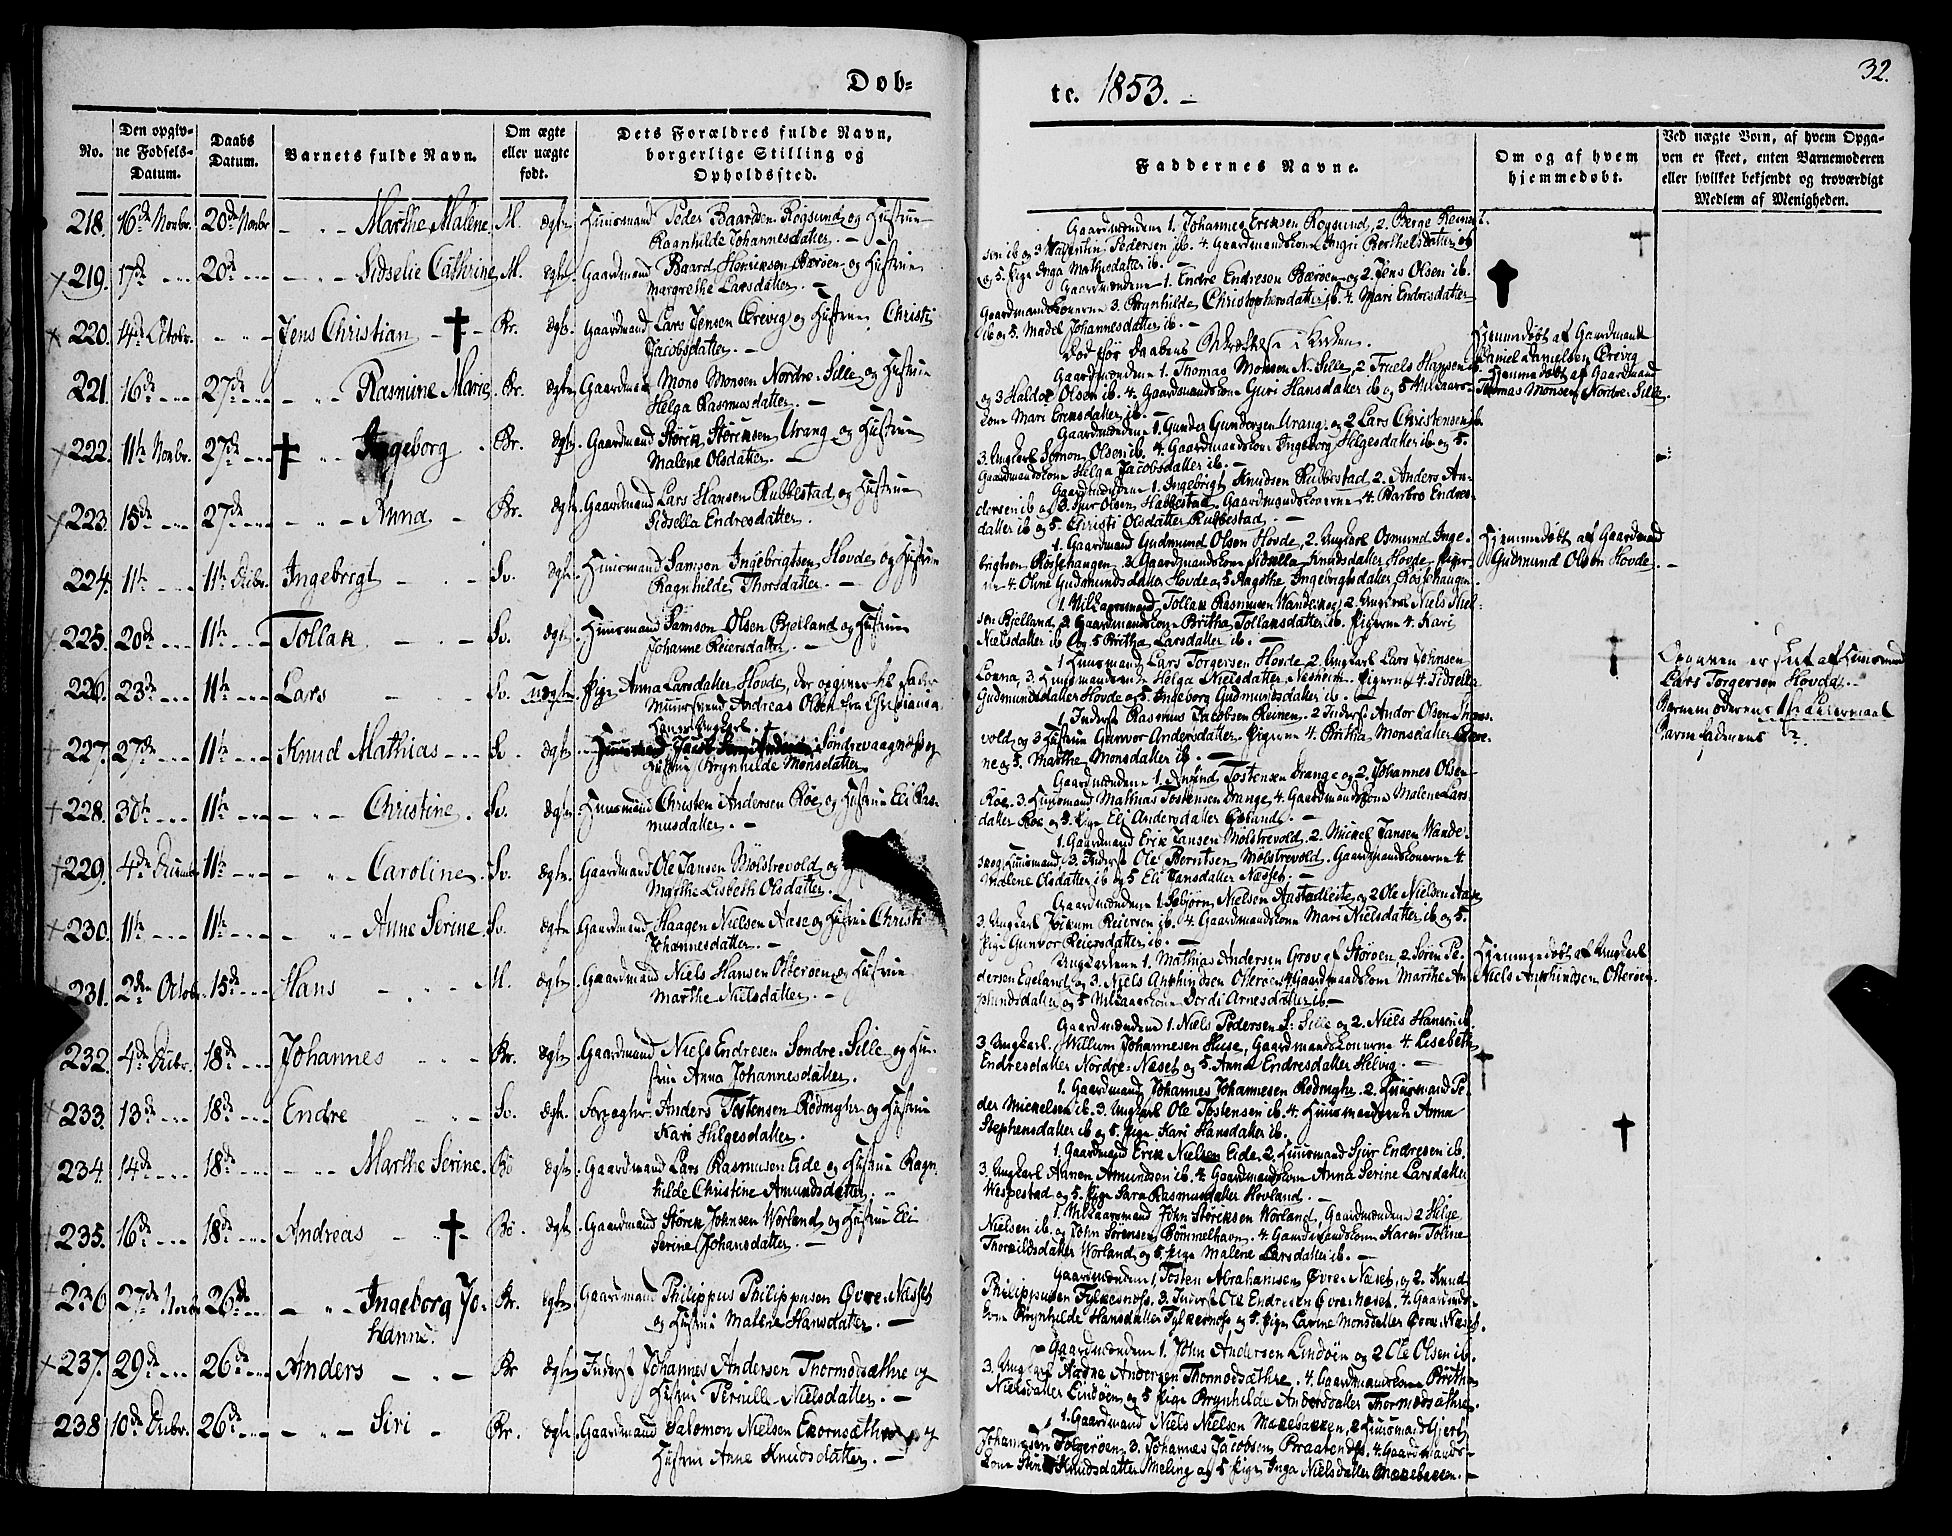 Døb=
te. 1853. —
32.
No.
Den opgiv-
ne Fødsels-
Datum.
Daabs
Datum.
Barnets fulde Navn.
Om ægte
eller uægte
født.
Dets Forældres fulde Navn,
borgerlige Stilling og
Opholdssted.
Faddernes Navne.
Om og af hvem
hjemmedøbt.
Ved uægte Børn, af hvem Opga-
ven er skeet, enten Barnemoderen
eller hvilket bekjendt og troværdigt
Medlem af Menigheden.
218. 16de Novbr. 20de Novbr Marthe Malene M. ægte Huusmand Peder Baardsen Røgsund og Hustrue
Ragnhilde Johannesdatter. —
Gaardmændene 1. Johannes Eriksen Rogsund, 2. Børge Reinert-
sen ib og 3 Valentin Pedersen ib. 4. Gaardmandskone Ingri Berthelsdatter ib
og 5. Pige Inga Mathisdatter ib. —
219. 17de 20de Sidselie Cathrine M. ægte Gaardmand Baard Henriksen Børøen og Hustrue
Margrethe Larsdatter. —
Gaardmændene 1. Endre Endresen Børøen og 2. Jens Olsen ib.
Gaardmandskonerne 3. Brynhilde Christophersdatter ib. 4. Mari Endresdatter
ib og 5. Madel Johannesdatter ib. —
220. 4de Octobr. Jens Christian Br. ægte Gaardmand Lars Jensen Ørevig og Hustrue Christi
Jacobsdatter. —
Død før Daabens Bekræftelse i Kirken.
Hjemmedøbt af Gaardmand
Daniel Danielsen Ørevig
221. 16de 27de Rasmine Marie Br. ægte Gaardmand Mons Monsen Nordre-Sille og Hustrue
Helga Rasmusdatter. —
Gaardmændene 1. Thomas Monsen N. Sille, 2. Truels Hansen ib
og 3 Haldor Olsen ib. 4. Gaardmandskone Guri Hansdatter ib og 5 Vilkaars-
kone Mari Eriksdatter ib. —
Hjemmedøbt af Gaardmand
Thomas Monsen Nordre-Sille.
222. 11te Novbr. 27de Ingeborg Br. ægte Gaardmand Størk Størksen Urang og Hustrue
Malene Olsdatter. —
Gaardmændene 1. Gunder Gundersen Urang og 2 Lars Christensen ib.
3. Ungkarl Simon Olsen ib. 4. Gaardmandskone Ingeborg Helgesdatter ib og 5.
Gaardmandskone Helga Jacobsdatter ib. —
223. 15de 27de Anna Br. ægte Gaardmand Lars Hansen Rubbestad og Hustrue
Sidsella Endresdatter.
Gaardmændene 1. Ingebrigt Knudsen Rubbestad, 2. Anders An-
dersen ib og 3. Sjur Olsen Habbestad. Gaardmandskonerne 4. Barbro Endres-
datter ib og 5. Christi Olsdatter Rubbestad. —
224. 11te 11te Decbr. Ingebrigt Sv. ægte Huusmand Samson Ingebrigtsen Hovde og Hustrue
Ragnhilde Thorsdatter. —
1. Gaardmand Gudmund Olsen Hovde, 2. Ungkarl Osmund Inge-
brigtsen Røssehaugen. 3. Gaardmandskone Sidsella Knudsdatter Hovde. Piger-
ne 4. Oline Gudmundsdatter Hovde og 5 Aagothe Ingebrigtsdatter Røssehaugen.
Hjemmedøbt af Gaardmand
Gudmund Olsen Hovde. —
225. 20de 11te Tollak Sv. ægte Huusmand Samson Olsen Bjelland og Hustrue
Johanne Reiersdatter. —
1. Vilkaarsmand Tollak Rasmusen Wandeskog, 2. Ungkarl Niels Niel-
sen Bjelland, 3. Gaardmandskone Britha Tollaksdatter ib. Pigerne 4. Kari
Nielsdatter ib og 5 Britha Larsdatter ib. —
226. 23de 11te Lars Sv. Uægte Pige Anna Larsdatter Hovde, der opgiver til Fader
Muursvend Andreas Olsen fra Christiania.
1 Huusmand Lars Torgersen Hovde, 2. Ungkarl Lars Johnsen
Lønna, 3. Huusmandskone Helga Nielsdatter Nesheim. Pigerne 4. Sidsella
Gudmundsdatter Hovde og 5. Ingeborg Gudmundsdatter ib. —
Opgaven er skeet af Huusmand
Lars Torgersen Hovda. —
Barnemoderens 1ste Leiermaal
Barnefaderens ?.
227. 27de 11te Knud Mathias Sv. ægte Søndrevaagenes og
Hustrue Brynhilde Monsdatter
1. Inderst Rasmus Jacobsen Reinen. 2 Inderst Andor Olsen
vold og 3 Hustrue Gunvor Andersdatter. Pigerne 4. Britha Monsdatter
ne og 5. Marthe Monsdatter ib. —
228. 30te 11te Christine Sv. ægte Huusmand Christen Andersen Røe, og Hustrue Eli Ras-
musdatter. —
Gaardmændene 1. Anfind Tostensen Drange og 2. Johannes Olsen
Røe. 3. Huusmand Mathias Tostensen Drange. 4. Gaardmandskone Malene Lars-
datter Røe og 5. Pige Eli Andersdatter Eslund. —
229. 4de Decemb 11te Caroline Sv. ægte Gaardmand Ole Jansen Mølstrevold og
Marthe Lisbeth Olsdatter. —
1. Gaardmand Erik Jansen Mølstrevold. 2. Mickel Jansen Wande-
skog, Huusmand. 3. Inderst Ole Berntsen Mølstrevold. Gaardmandskonerne 4.
Malene Olsdatter ib og 5 Eli Jansdatter Næsset. —
230. 11te 11te Anne Serine Sv. ægte Gaardmand Haagen Nielsen Aase og Hustrue Christi
Johannesdatter. —
Gaardmændene 1. Esbjørn Nielsen Aastadleite og 2 Ole Nielsen Aase.
3. Ungkarl Joakum Reiersen ib. 4. Gaardmandskone Mari Nielsdatter ib og 5.
Pige Gunvor Reiersdatter ib. —
231. 2den Octob. 15de Hans M. ægte Gaardmand Niels Hansen Otterøen og Hustrue
Marthe Nielsdatter. —
Ungkarlene 1. Mathias Andersen Grov af Storøen, 2 Søren Pe-
dersen Eyeland og 3. Niels Anphindsen Otterøen. 4. Gaardmandskone Marthe An-
phindsdatter og 5 Vilkaarskone Jordi Arnesdatter ib —
Hjemmedøbt af Ungkarl
Niels Anphindsen Otterøen.
232. 4de Decbr. 18de Johannes Br. ægte Gaardmand Niels Endresen Søndre-Sille og Hu-
strue Anna Johannesdatter.
Gaardmændene 1. Niels Pedersen S: Sille og 2. Niels Hansen ib.
3 Ungkarl Willum Johannesen Huse, Gaardmandskonerne 4. Lisabeth
Endresdatter Nordre-Næset og 5. Anna Endresdatter Helvig. —
233. 13de 18de Endre Sv. ægte. Forpagter Anders Tostensen Rødmyhr og Hustrue
Kari Helgesdatter.
1. Gaardmand Johannes Johannesen Rødmyhr. 2. Huusmand Pe-
der Mickelsen ib. 3. Ungkarl Ole Tostensen ib. 4. Huusmandsenke Anna
Stephensdatter ib og 5. Pige Kari Hansdatter ib.
234. 14de 18de Marthe Serine. Bø ægte Gaardmand Lars Rasmusen Eide og Hustrue Ragn-
hilde Christine Amundsdatter. —
1. Gaardmand Erik Nielsen Eide, 2. Huusmand Sjur Endresen ib.
3. Ungkarl Aanen Amundsen ib. 4. Gaardmandskone Anna Serine Larsdatter
Wespestad og 5. Pige Sara Rasmusdatter Hovland. —
235. 16de 18de Andreas Bø ægte Gaardmand Størk Johnsen Worland og Hustrue Eli
Serine Johansdatter. —
1. Vilkaarsmand John Størksen Worland, Gaardmændene 2 Helge
Nielsen ib og John Sørensen Bømmelhavn. 4. Gaardmandskone Karen Toline
Thorkildsdatter Worland og 5. Pige Malene Larsdatter ib. —
236 27de Novbr 26de Ingeborg Jo-
hanne. Br. ægte Gaardmand Philippus Philippusen Øvre-Næsset
og Hustrue Malene Hansdatter. —
Gaardmændene 1. Tosten Abrahamsen Øvre Næset, og 2. Knud
Philippusen Fylkesnæs. 3. Inderst Ole Endresen Øvre Næset. 4. Gaardmands-
kone Brynhilde Hansdatter Fylkesnæs og 5. Pige Larine Monsdatter Øvre-Næset.
237. 29de 26de Anders Br ægte Inderst Johannes Andersen Thormodsæthre og
Hustrue Pernille Nielsdatter. —
Gaardmændene 1. John Andersen Lindøen og 2 Ole Olsen ib.
3. Ungkarl Aadne Andersen Thormodsæthre. 4. Gaardmandskone Britha
Nielsdatter Lindøen og 5 Pige Brynhilde Andersdatter Thormodsæthre.
238 10de Decbr. 26de Siri Br. ægte Gaardmand Salomon Nielsen Ekornsæther og
Hustrue Anne Knudsdatter. —
1. Gaardmand Niels Nielsen Mekebakken, 2 Huusmand Gjert
Johannesen Folgerøen, 3. Johannes Jacobsen Braatends. 4. Gaardmands-
kone Knudsdatter Meling og 5 Pige Inga Nielsdatter Mekebakken. —